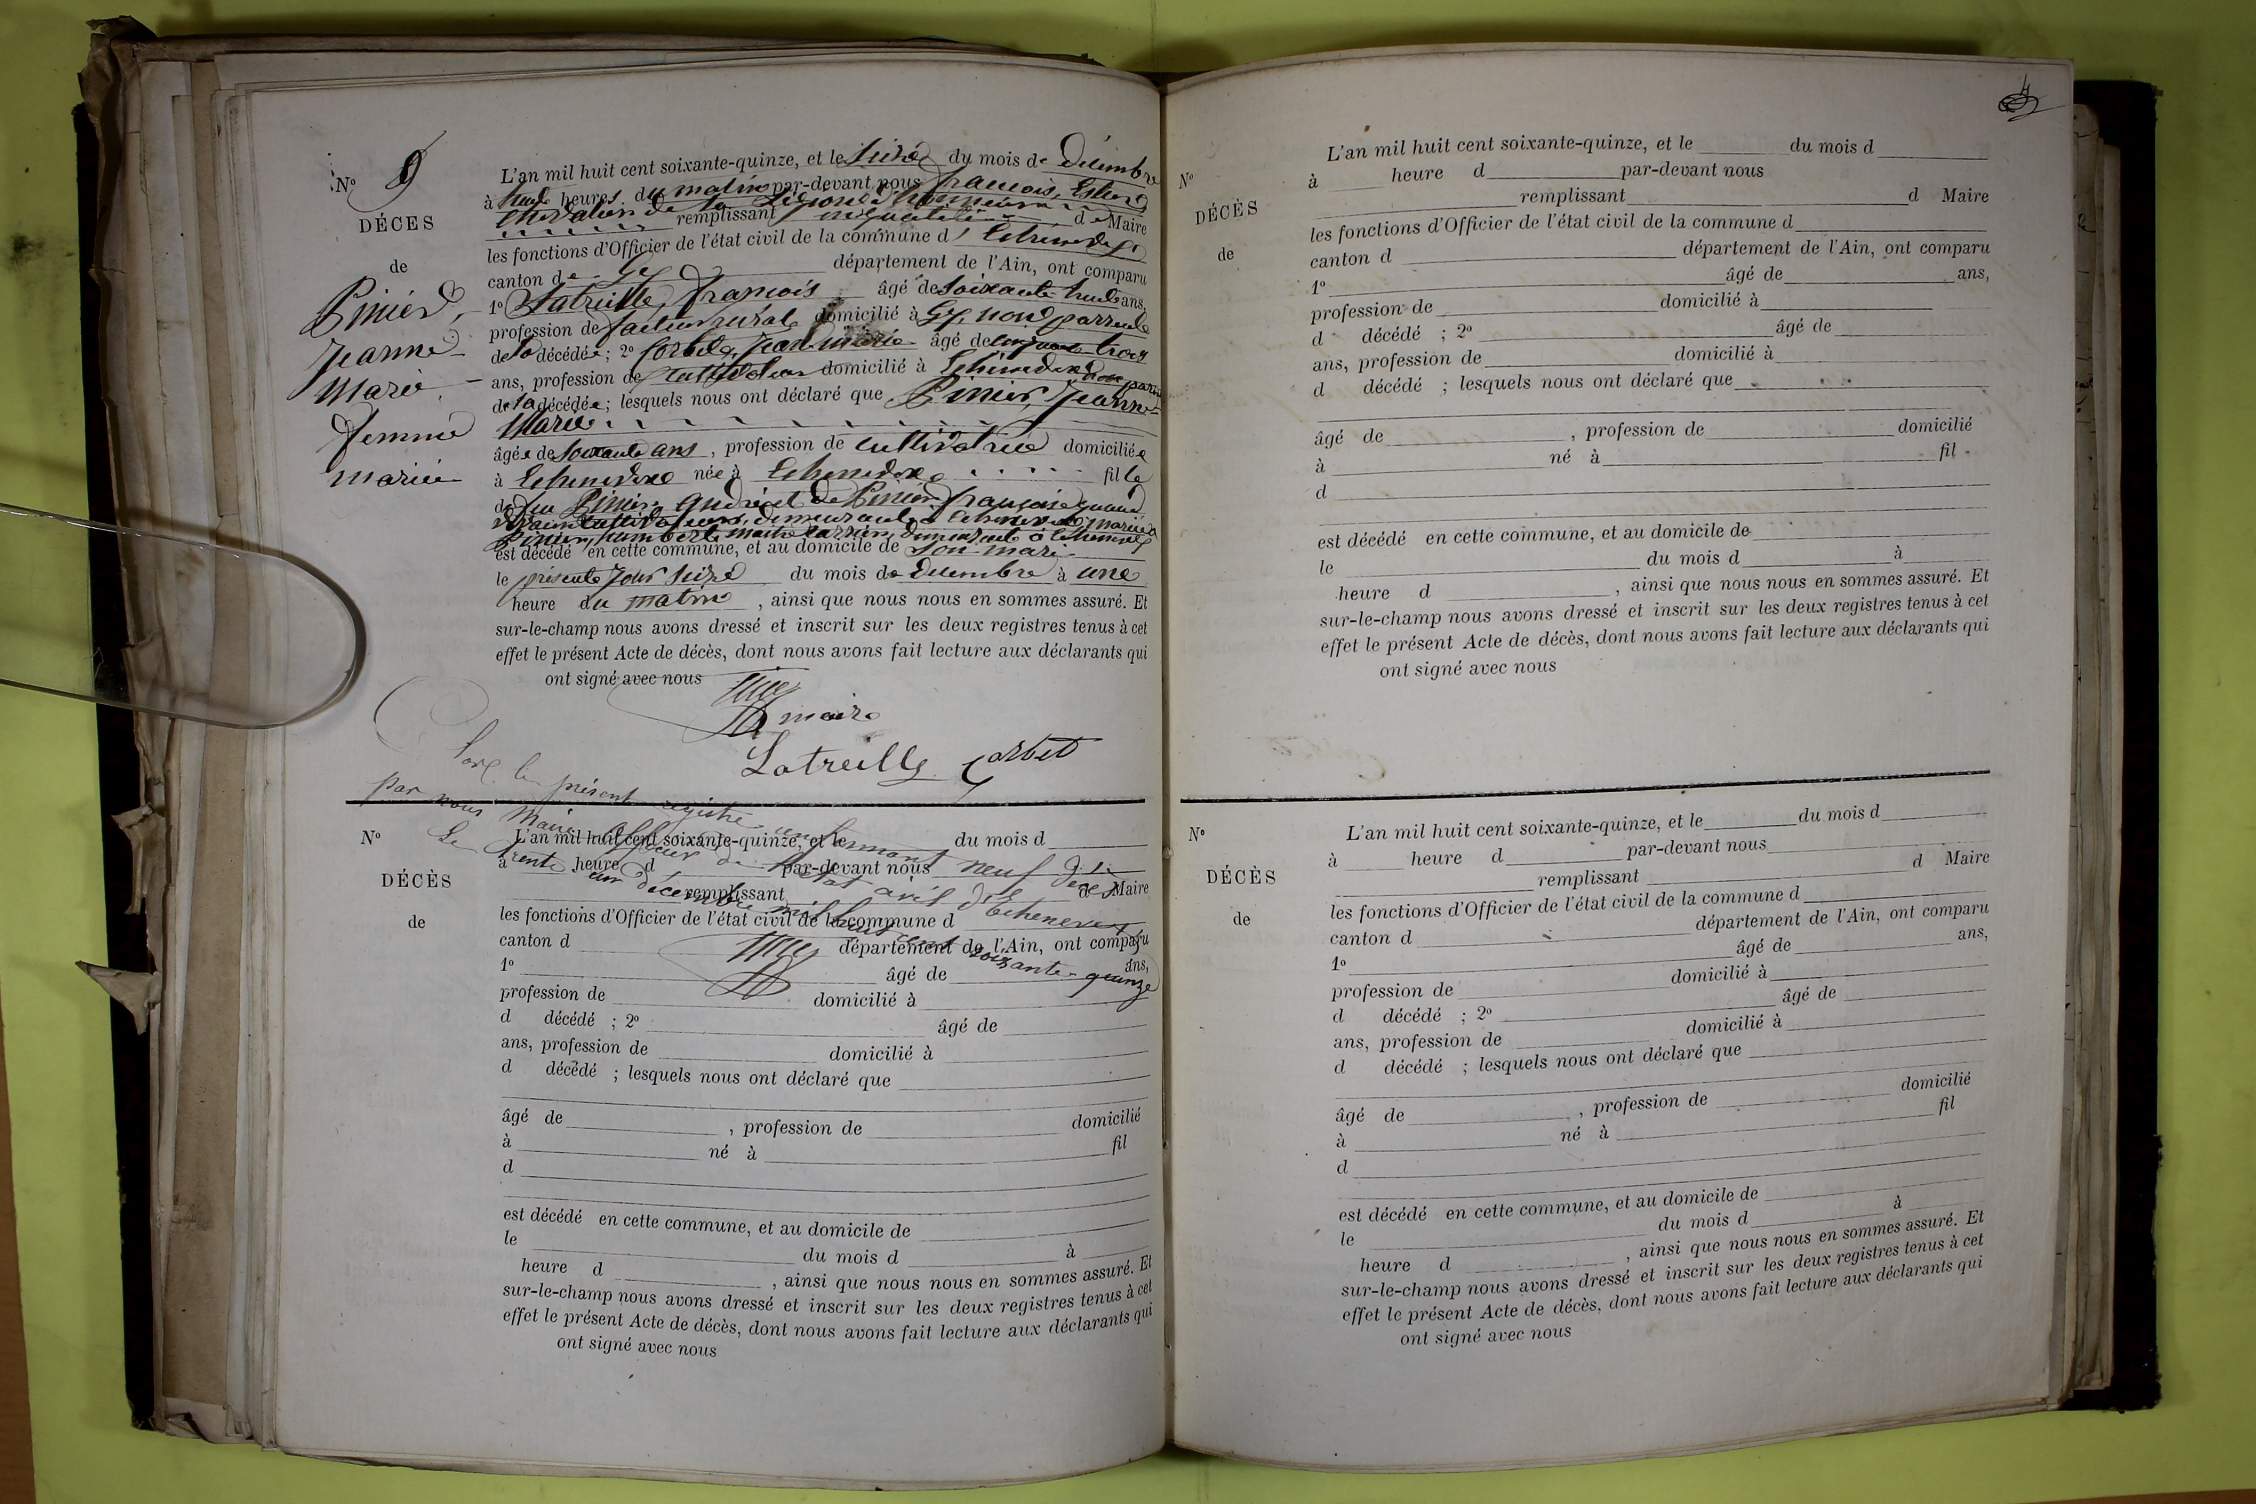 N° 9
DÉCES
de
Pinier,
Jeanne
Marie,
femme
mariée
L'an mil huit cent soixante-quinze, et le seize du mois de décembre
à huit heures du matin par-devant nous françois,
chevalier de la Légion d'honneur remplissant en qualité de Maire
les fonctions d'Officier de l'état civil de la commune d'Echenevex
canton de Gex département de l'Ain, ont comparu
1° Latreille, françois âgé de soixante huit ans,
profession de facteur rural domicilié à Gex, non parent
de la décédée; 2° Corbet, Jean marie âgé de cinquante trois
ans, profession de cultivateur domicilié à Echenevex non parent
de la décédée; lesquels nous ont déclaré que Pinier, Jeanne
Marie
âgée de soixante ans, profession de cultivatrice domiciliée
à Echenevex née à Echenevex fille
de feu Pinier, andré et de Pinier, françoise quand
cultivateurs, demeurant à Echenevex, mariée à
Pinier, humbert demeurant à Echenevex
est décédé en cette commune, et au domicile de son mari
le présent jour seize du mois de décembre à une
heure du matin, ainsi que nous nous en sommes assuré. Et
sur-le-champ nous avons dressé et inscrit sur les deux registres tenus à cet
effet le présent Acte de décès, dont nous avons fait lecture aux déclarants qui
ont signé avec nous
maire
Latreille Corbet
Clos le présent registre renfermant neuf décès
par nous Maire officier de l'état civil d'Echenevex
Le trente un décembre mil huit cent soixante-quinze
N°
DÉCÈS
de
L'an mil huit cent soixante-quinze, et le du mois d
à heure d par-devant nous
remplissant d Maire
les fonctions d'Officier de l'état civil de la commune d
canton d département de l'Ain, ont comparu
1° âgé de ans,
profession de domicilié à
d décédé ; 2° âgé de
ans, profession de domicilié à
d décédé ; lesquels nous ont déclaré que
âgé de , profession de domicilié
à né à fil
d
est décédé en cette commune, et au domicile de
le du mois d à
heure d , ainsi que nous nous en sommes assuré. Et
sur-le-champ nous avons dressé et inscrit sur les deux registres tenus à cet
effet le présent Acte de décès, dont nous avons fait lecture aux déclarants qui
ont signé avec nous
4
N°
DÉCÈS
de
L'an mil huit cent soixante-quinze, et le du mois d
à heure d par-devant nous
remplissant d Maire
les fonctions d'Officier de l'état civil de la commune d
canton d département de l'Ain, ont comparu
1° âgé de ans,
profession de domicilié à
d décédé ; 2° âgé de
ans, profession de domicilié à
d décédé ; lesquels nous ont déclaré que
âgé de , profession de domicilié
à né à fil
d
est décédé en cette commune, et au domicile de
le du mois d à
heure d , ainsi que nous nous en sommes assuré. Et
sur-le-champ nous avons dressé et inscrit sur les deux registres tenus à cet
effet le présent Acte de décès, dont nous avons fait lecture aux déclarants qui
ont signé avec nous
N°
DÉCÈS
de
L'an mil huit cent soixante-quinze, et le du mois d
à heure d par-devant nous
remplissant d Maire
les fonctions d'Officier de l'état civil de la commune d
canton d département de l'Ain, ont comparu
1° âgé de ans,
profession de domicilié à
d décédé ; 2° âgé de
ans, profession de domicilié à
d décédé ; lesquels nous ont déclaré que
âgé de , profession de domicilié
à né à fil
d
est décédé en cette commune, et au domicile de
le du mois d à
heure d , ainsi que nous nous en sommes assuré. Et
sur-le-champ nous avons dressé et inscrit sur les deux registres tenus à cet
effet le présent Acte de décès, dont nous avons fait lecture aux déclarants qui
ont signé avec nous